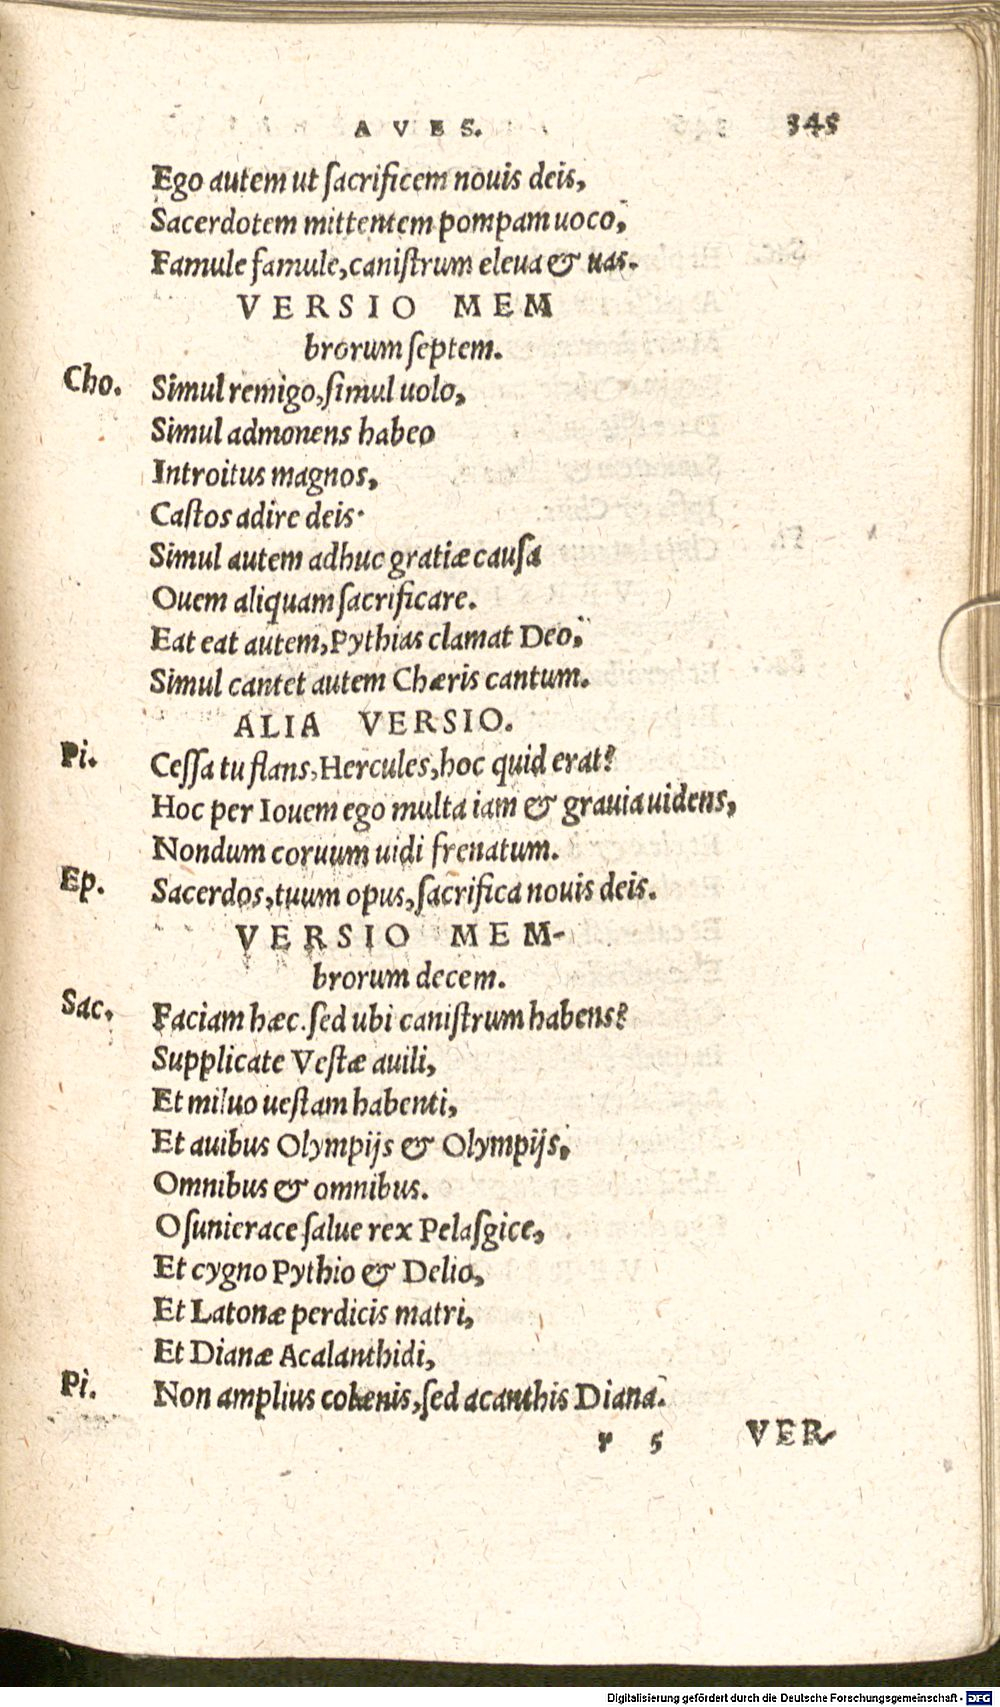 AVES. 345
Ego autem ut ſacrificem nouis deis,
Sacerdotem mittentem pompam uoco,
Famule famule, caniſtrum eleua & uas.
VERSIO MEM
brorum ſeptem.
Cho. Simul remigo, ſimul uolo,
Simul admonens habeo
Introitus magnos,
Caſtos adire deis.
Simul autem adhuc gratiæ cauſa
Ouem aliquam ſacrificare.
Eat eat autem, Pythias clamat Deo,
Simul cantet autem Chæris cantum.
ALIA VERSIO.
Pi. Ceſſa tu flans, Hercules, hoc quid erat?
Hoc per Iouem ego multa iam & grauia uidens,
Nondum coruum uidi frenatum.
Ep. Sacerdos, tuum opus, ſacrifica nouis deis.
VERSIO MEM-
brorum decem.
Sac. Faciam hæc. ſed ubi caniſtrum habens?
Supplicate Veſtæ auili,
Et miluo ueſtam habenti,
Et auibus Olympijs & Olympijs,
Omnibus & omnibus.
O ſunierace ſalue rex Pelaſgice,
Et cygno Pythio & Delio,
Et Latonæ perdicis matri,
Et Dianæ Acalanthidi,
Pi. Non amplius colænis, ſed acanthis Diana.
r 5 VER-
Digitalisierung gefördert durch die Deutsche Forschungsgemeinschaft - DFG